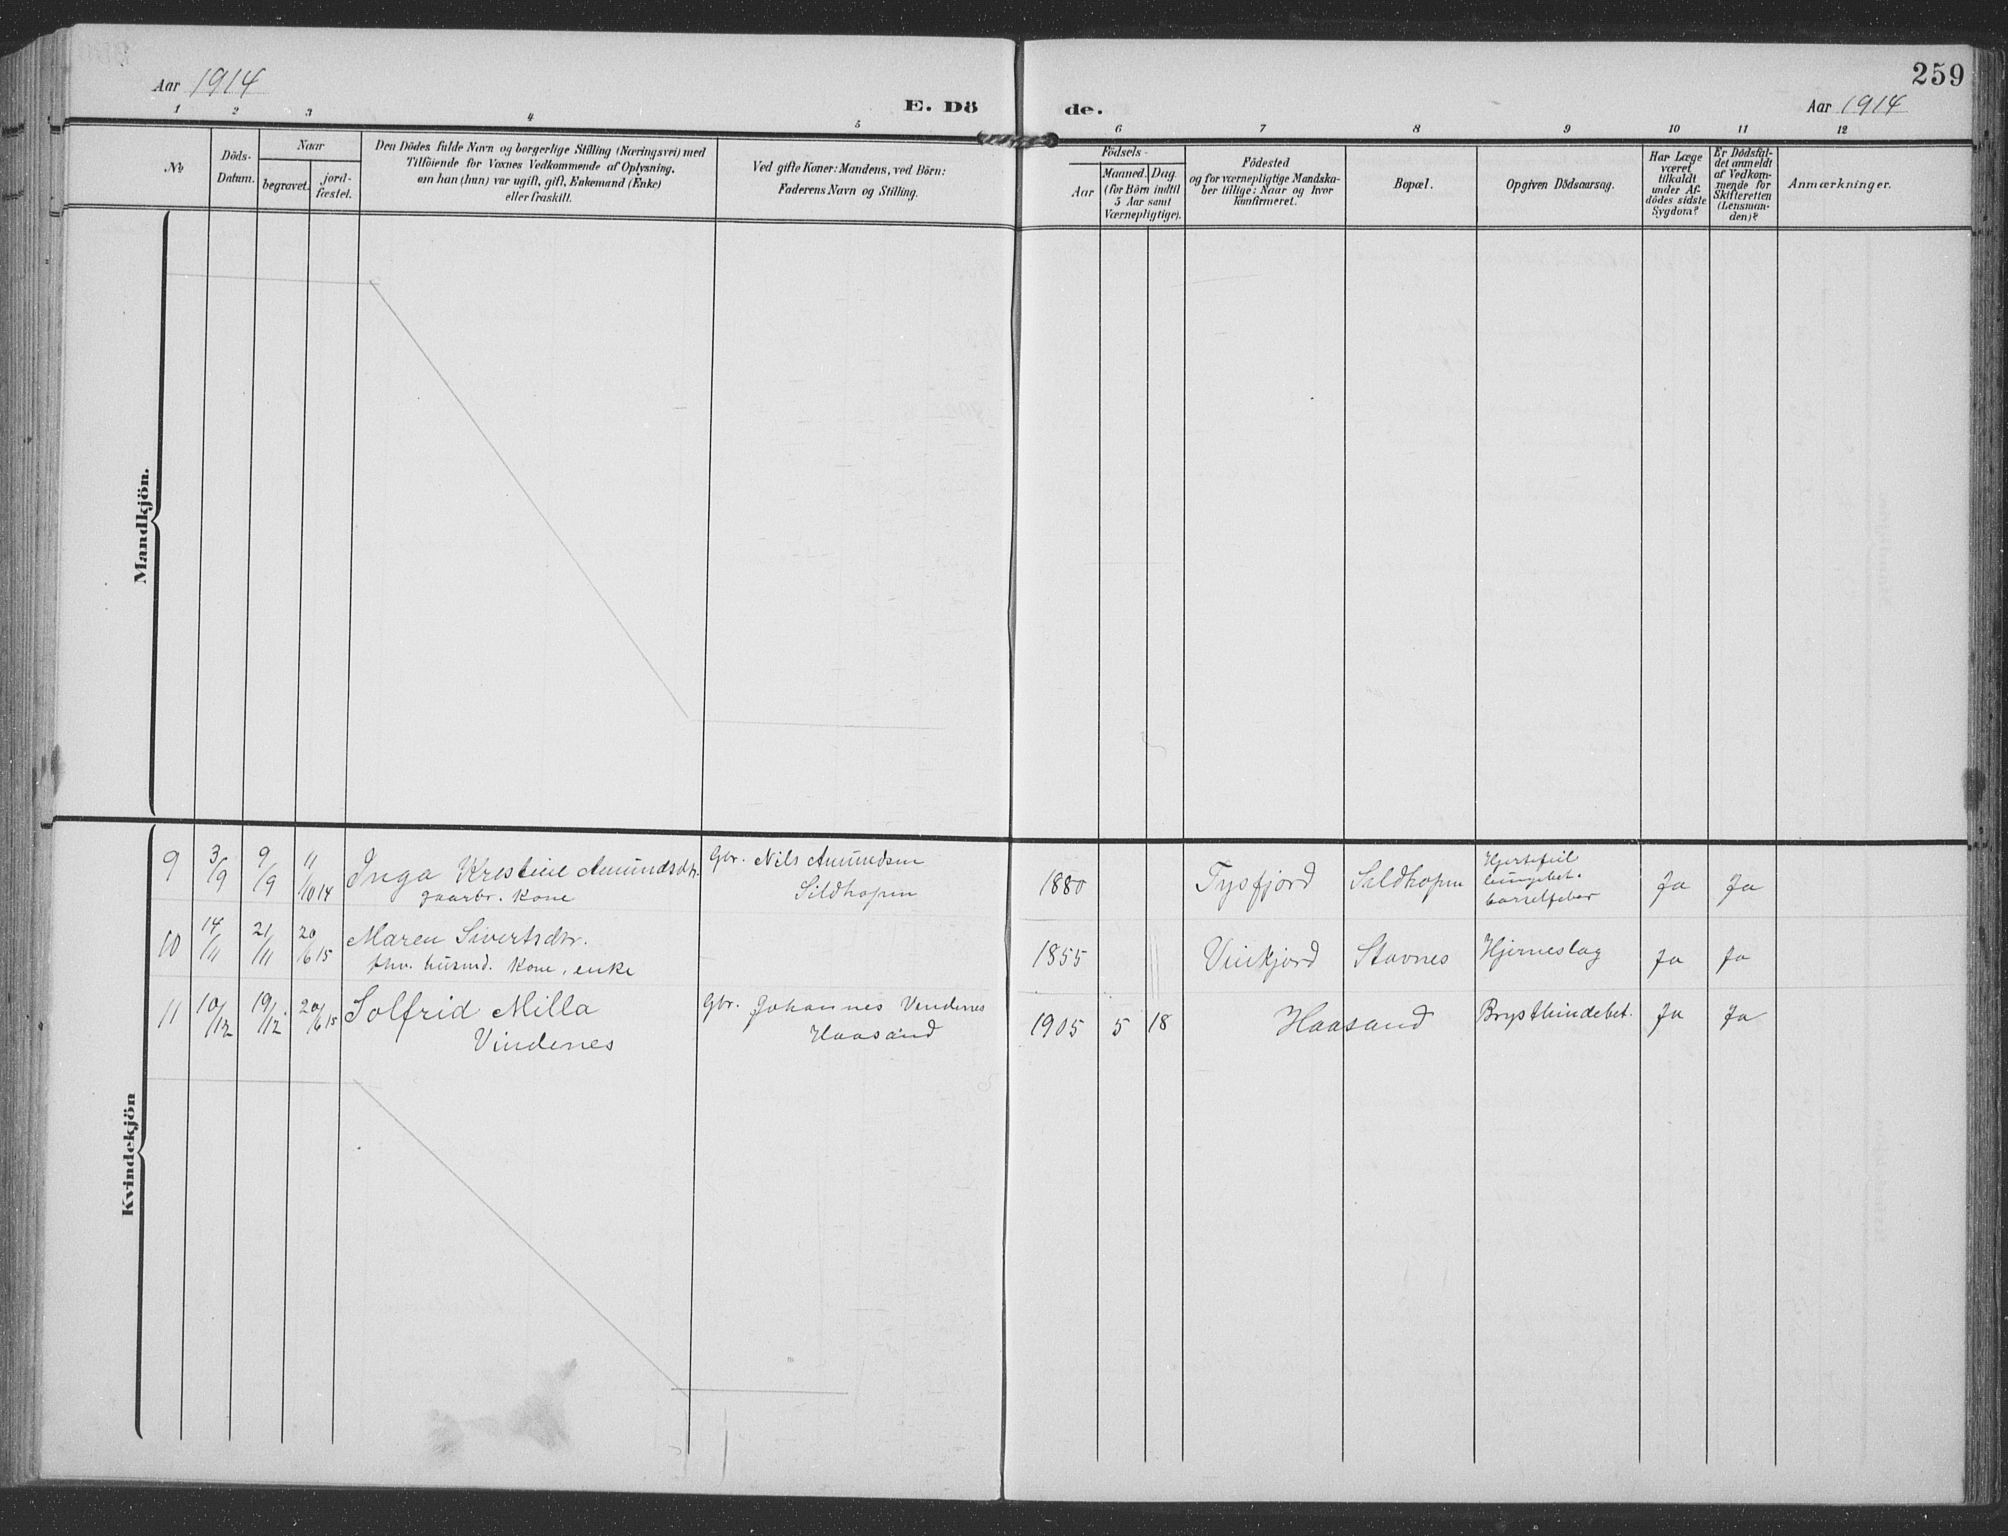 259
Aar 1914
E. Dö
de.
Aar 1914
1 2 3 4 5 6 7 8 9 10 11 12
No
Döds-
Datum.
Naar
begravet.
jord-
fæstet.
Den Dödes fulde Navn og borgerlige Stilling (Næringsvei) med
Tilföiende for Voxnes Vedkommende af Oplysning,
om han (hun) var ugift, gift, Enkemand (Enke)
eller fraskilt.
Ved gifte Koner: Mandens, ved Börn:
Faderens Navn og Stilling.
Födsels-
Aar
Maaned. Dag.
(for Börn indtil
5 Aar samt
Værnepligtige).
Födested
og for værnepligtige Mandska-
ber tillige: Naar og hvor
konfirmeret.
Bopæl.
Opgiven Dödsaarsag.
Har Læge
været
tilkaldt
under Af-
dödes sidste
Sygdom?
Er Dödsfal-
det anmeldt
af Vedkom-
mende for
Skifteretten
(Lensman-
den)?
Anmærkninger.
Mandkjön.
Kvindekjön
9 3/9 9/9 11/10 14 Inga Kristine Amundsdtr. Gbr. Nils Amundsen 1880 Tysfjord Sildhopen Hjertefeil
gaarbr. Kone Sildhopen lungebet. Ja Ja
barselfeber
10 14/11 21/11 20/6 15 Maren Sivertsdtr. 1855 Vinkjord Stavnes Hjerneslag Ja Ja
fhv. husmd. Kone, enke
11 10/12 19/12. 20/6 15 Solfrid Milla Gbr. Johannes Vindenes 1905 5 18 Haasand Brysthindebet. Ja Ja
Vindenes Haasand